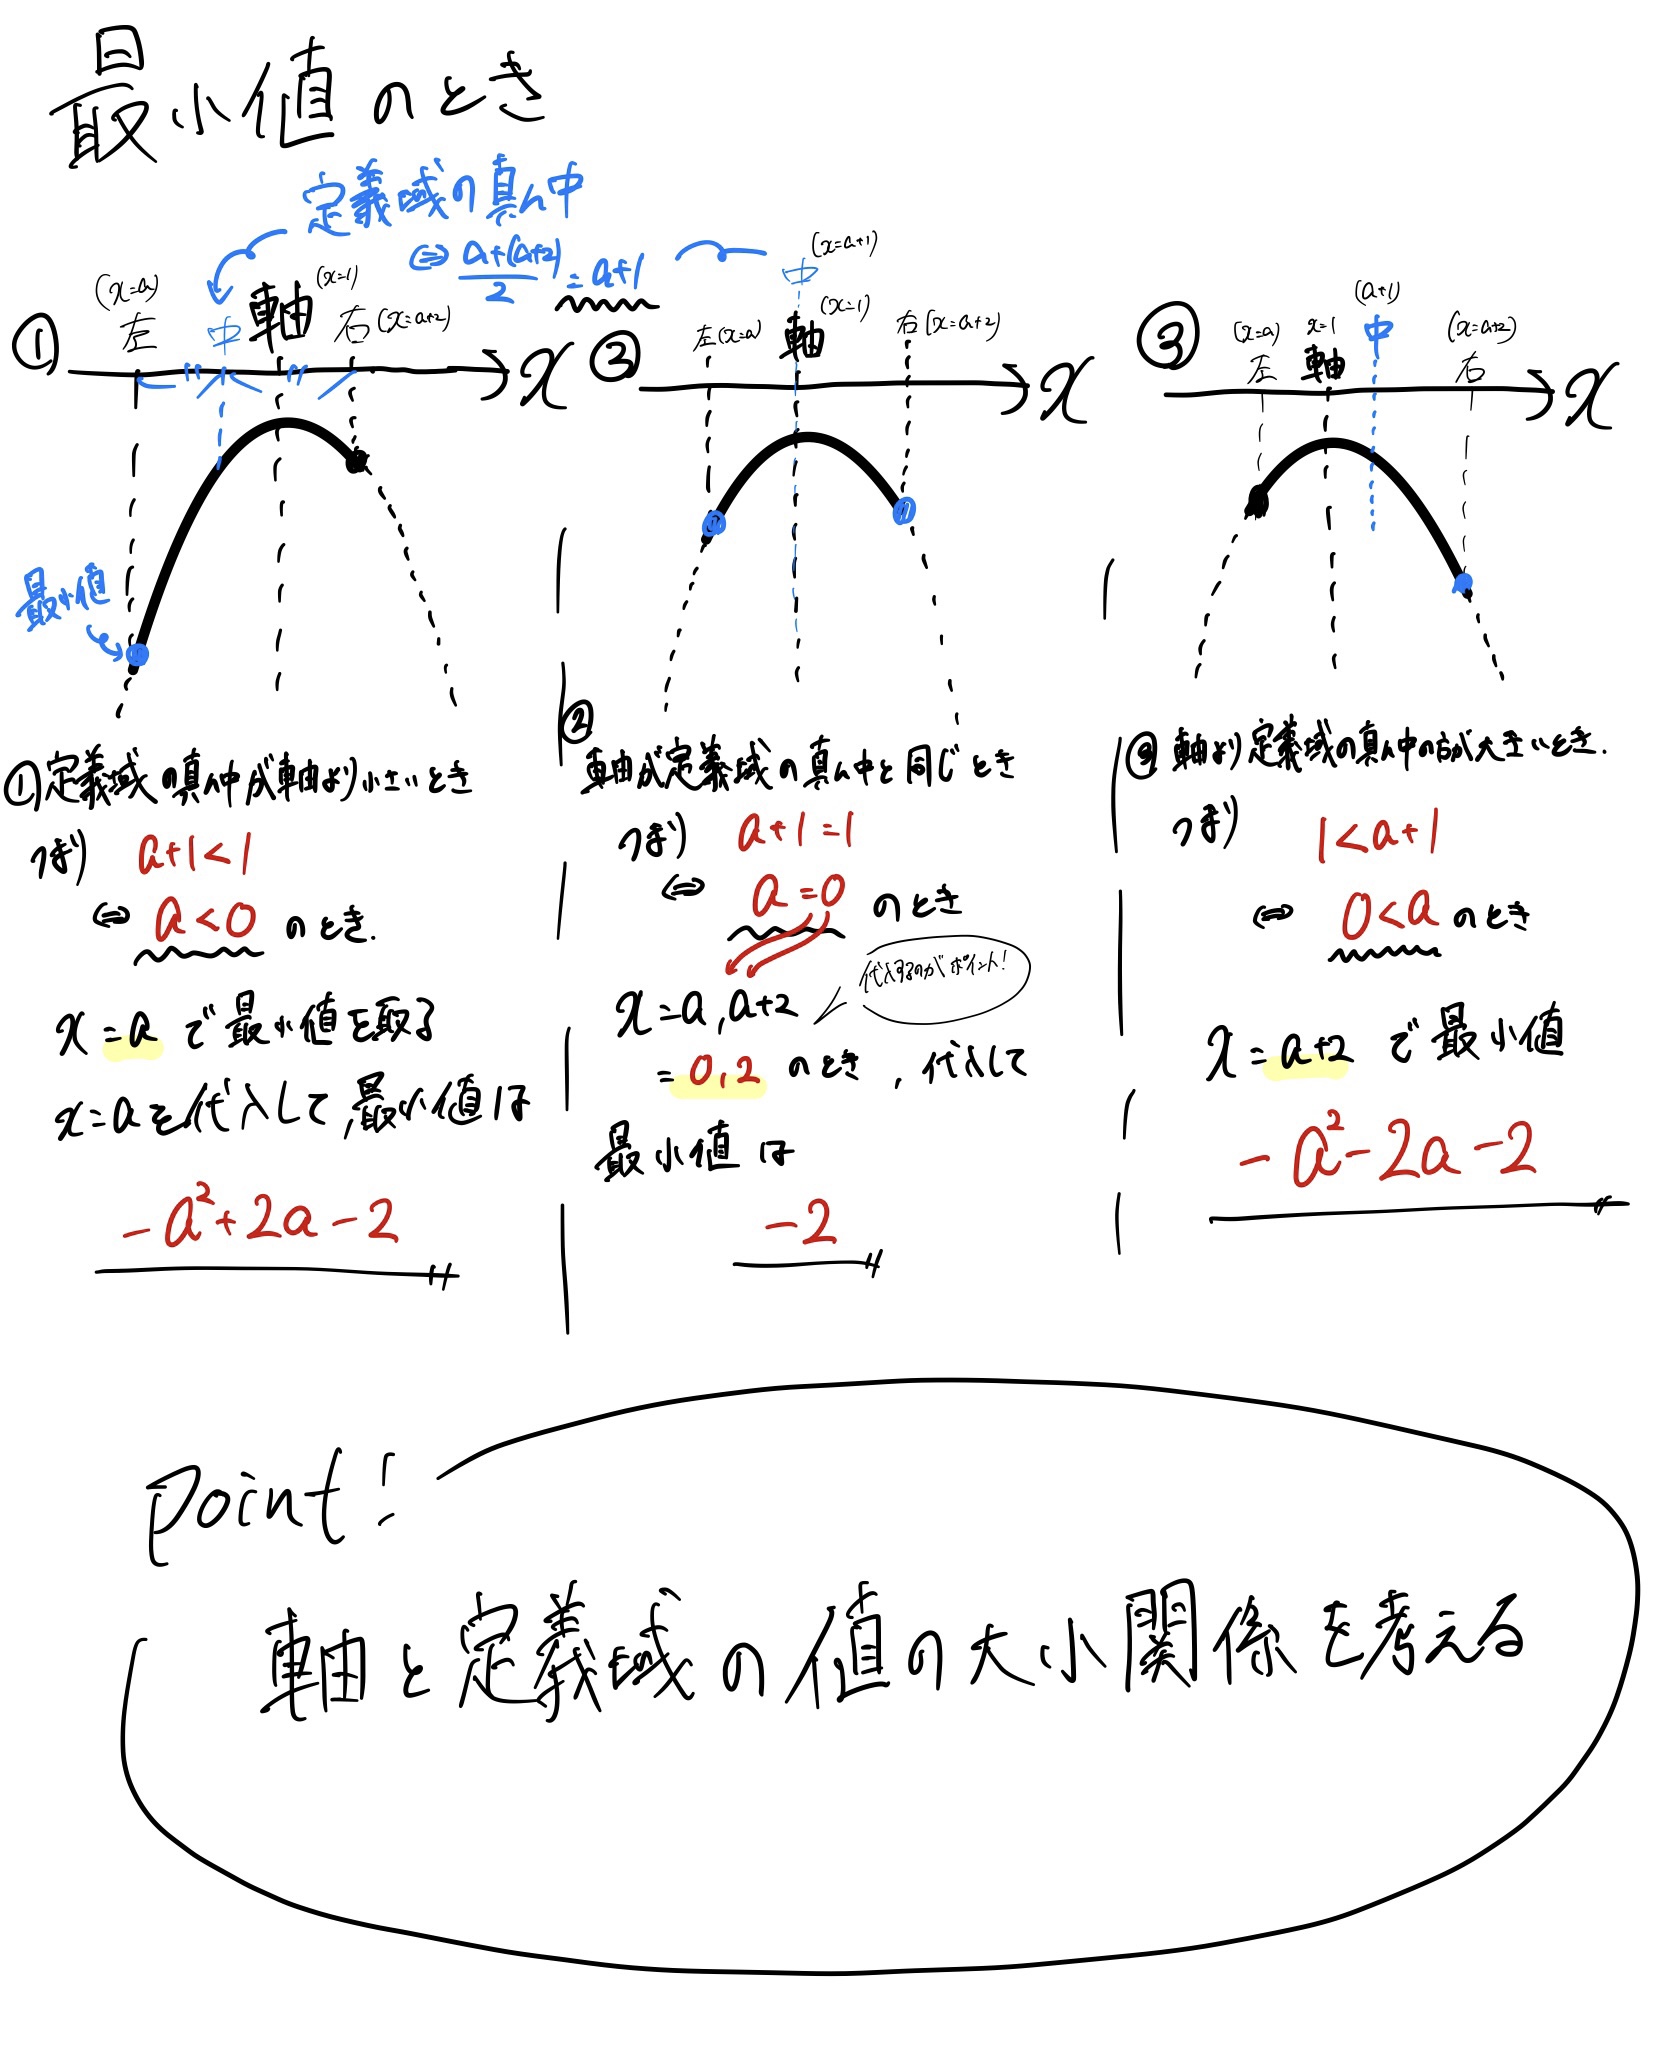 最小値のとき
定義域の真ん中
⇔ a+(a+2)/2 = a+1
① (x=a) 左 中 軸 (x=1) 右 (x=a+2) x
② 左 (x=a) 中 (x=a+1) 軸 (x=1) 右 (x=a+2) x
③ (x=a) 左 x=1 軸 (a+1) 中 (x=a+2) 右 x
最小値
①定義域の真ん中が軸より小さいとき
つまり a+1<1
⇔ a<0 のとき.
x=a で最小値を取る
x=aを代入して,最小値は
-a²+2a-2
②
軸が定義域の真ん中と同じとき
つまり a+1=1
⇔ a=0 のとき
代入するのがポイント!
x=a,a+2
=0,2 のとき,代入して
最小値は
-2
③ 軸より定義域の真ん中の方が大きいとき.
つまり 1<a+1
⇔ 0<a のとき
x=a+2 で最小値
-a²-2a-2
point!
軸と定義域の値の大小関係を考える